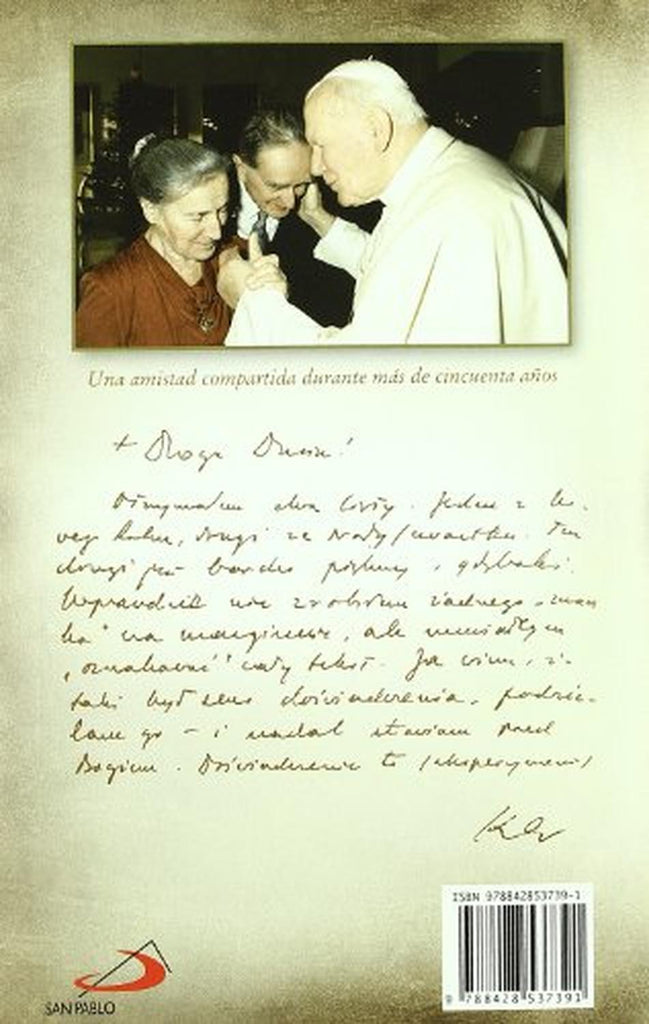 Una amistad compartida durante más de cincuenta años
+ Droga Dusiu!
Otrzymałem dwa listy. Jeden z
drugi ze środy/czwartku. Ten
drugi jest bardzo piękny i głęboki.
Wprawdzie nie zrobiłem żadnego „zna-
ka” na marginesie, ale musiałbym
„oznakować” cały tekst. Ja wiem, że
taki był sens doświadczenia, podzie-
lam go – i nadal stawiam przed
Bogiem. Doświadczenie to (eksperyment)
ISBN 978842853739-1
9 788428 537391
SAN PABLO